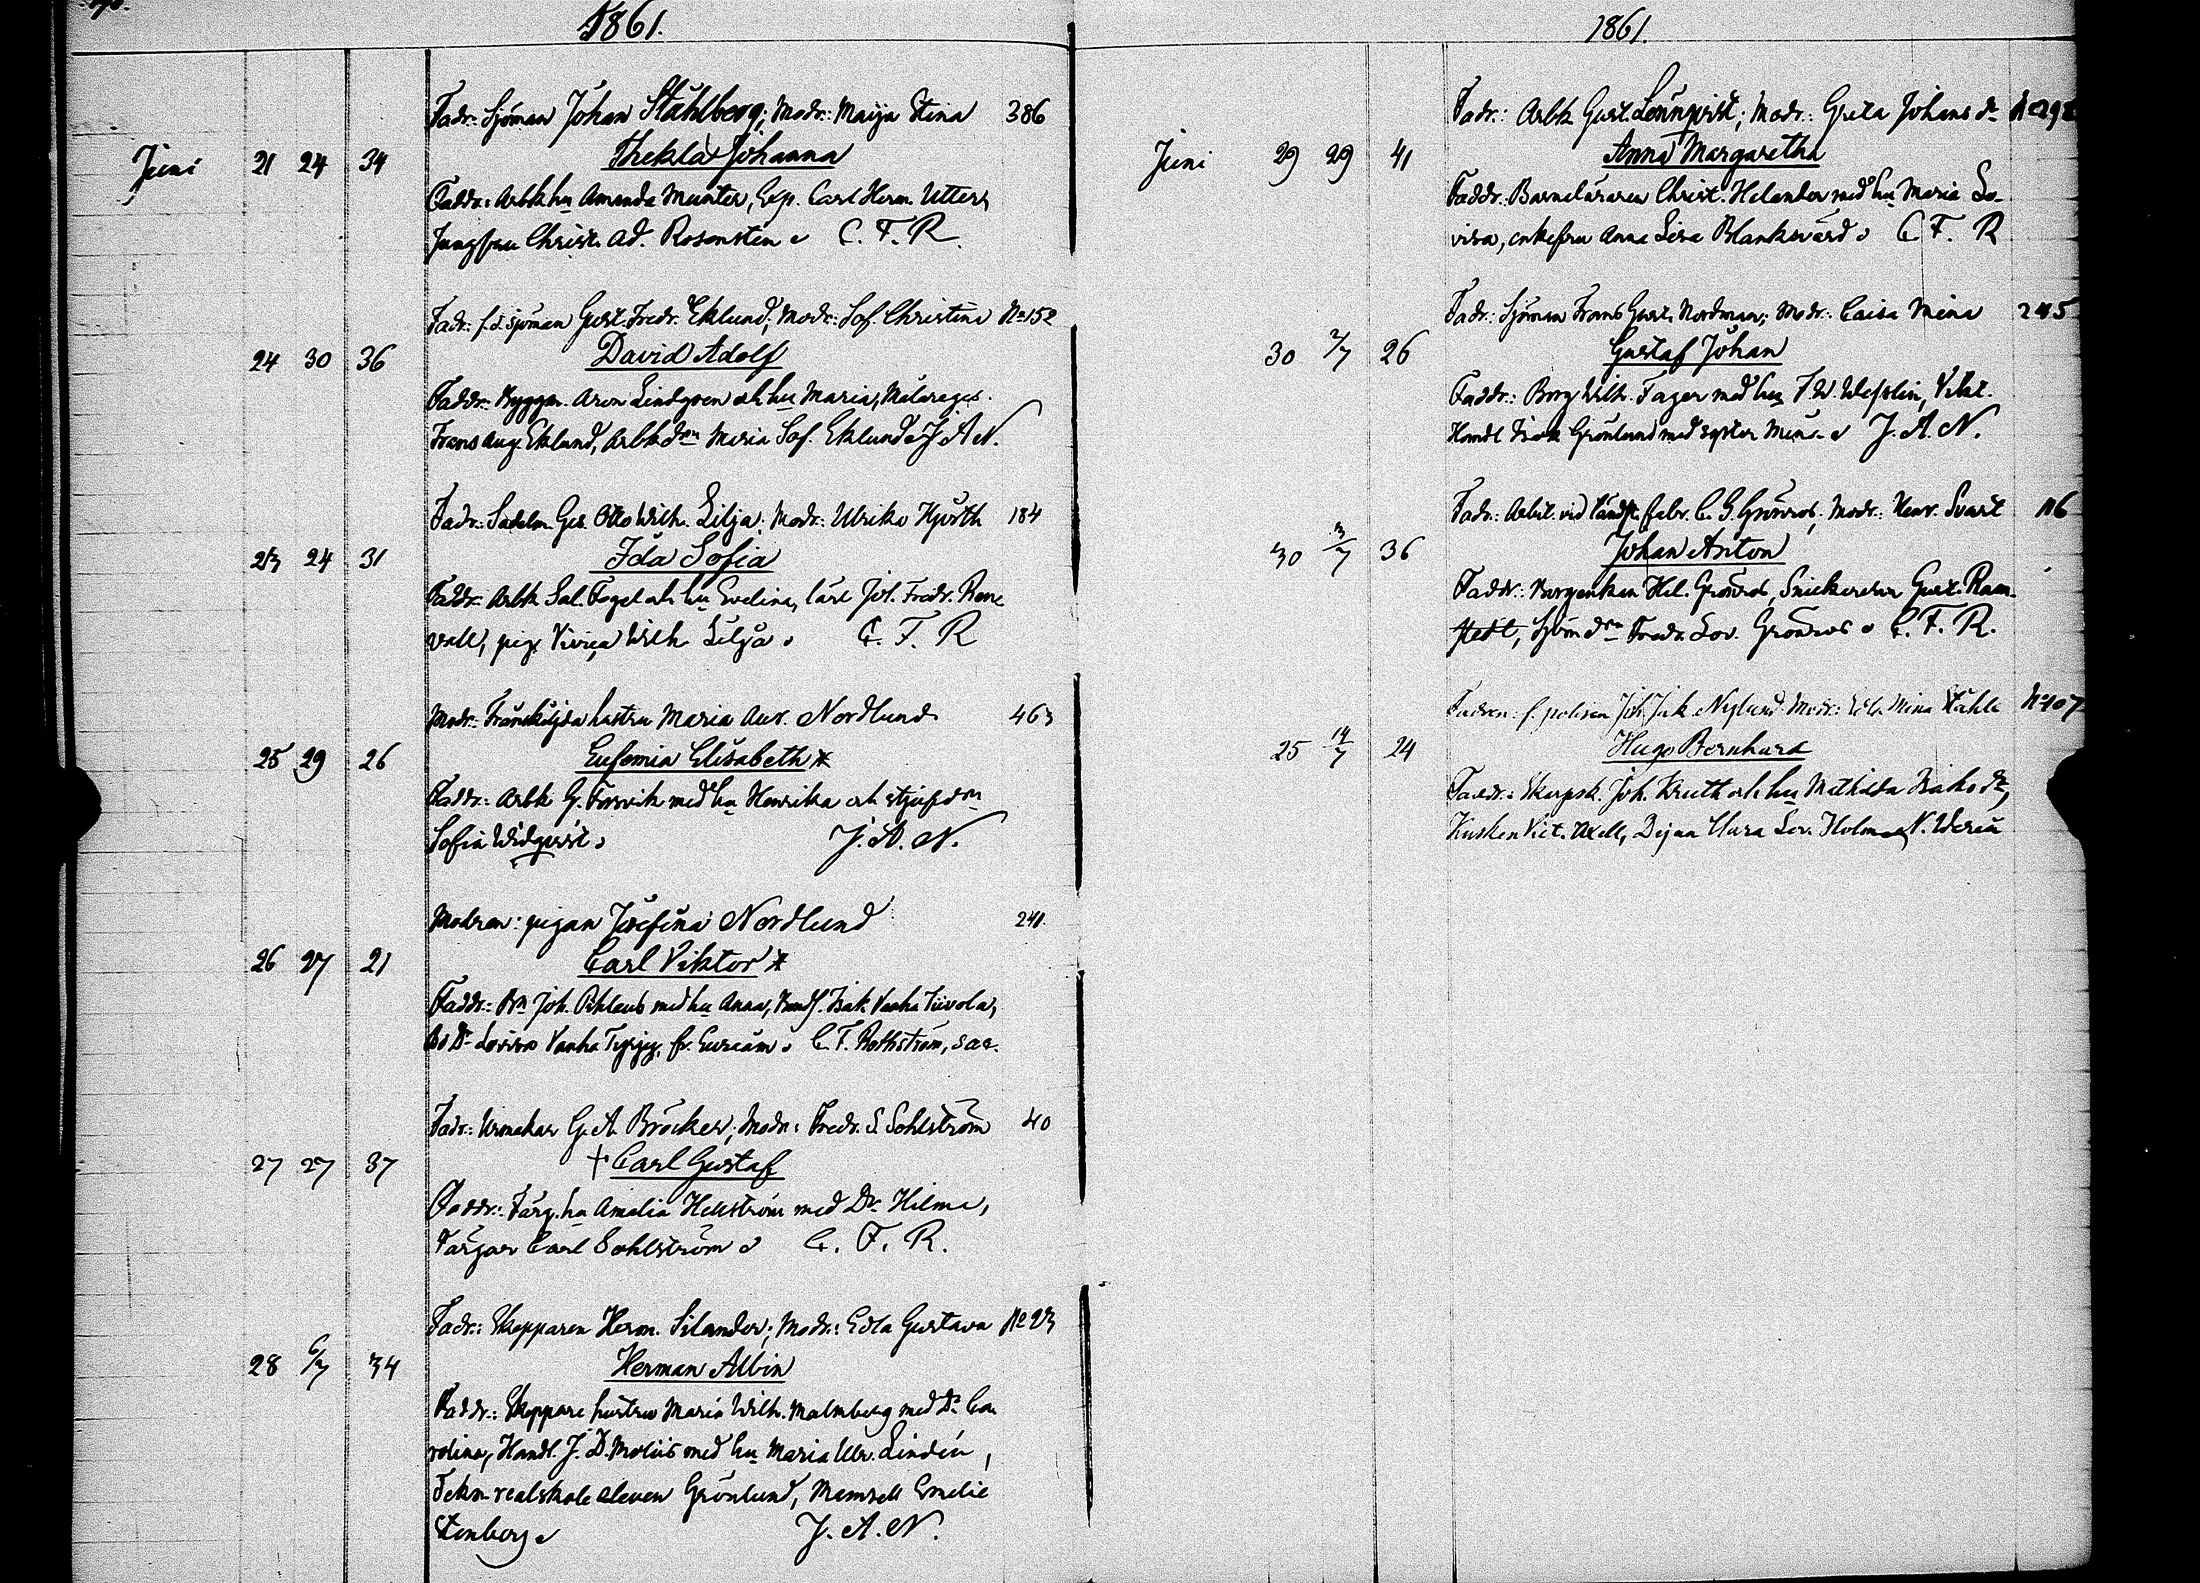 1861.
Fadr: Sjöman Johan Ståhlberg; Modr: Maija Stina 386
Juni 21 24 34 Thekla Johanna
Faddr: Arbk hu Amanda Munter, Carl Herm. Utter,
Jungfru Christ. Ad. Rosensten C. F. R.
Fadr: f.d. sjöman Gust. Fredr. Eklund; Modr: Sof. Christina No 152
24 30 36 David Adolf
Faddr: Byggm. Aron Lindgren och hu Maria, Målareges.
Frans Aug. Eklund, Arbk dn Maria Sof. Eklund J. A. N.
Fadr: Sadelm. Ges. Otto Wilh. Lilja; Modr: Ulrika Hjorth 184
23 24 31 Ida Sofia
Faddr: Arbk Sal. Fogel och hu Evelina, lärl Joh. Fredr. Rene
vall, pig. Vivica Wilh. Lilja C. F. R
Modr: Frånskiljda hustru Maria Aur. Nordlund 463
25 29 26 Eufemia Elisabeth *
Faddr: Arbk G. Forsvik med hu Henrika och stjufdn
Sofia Widqvist J. A. N.
Modren: pigan Josefina Nordlund 241.
26 27 21 Carl Viktor *
Faddr: Bn Joh. med hu Anna, Isak Vanha
Dr Lovisa Vanha fr. Euraåm. C. F. Rothström, sac.
Fadr: Urmakar G. A. Bröcker; Modr: Fredr. S. Sohlström 40
27 27 37 + Carl Gustaf
Faddr: Färg. hu Amalia Hellström med Dr Hilma,
Färgar Carl Sohlström C. F. R.
Fadr: Skepparen Herm. Silander; Modr: Edla Gustava No 23
28 6/7 34 Herman Albin
Faddr: Skeppare hustru Maria Wilh. Malmberg med Dr Ca-
rolina, Handl. J. D. Moliis med hu Maria Ulr. Lindén,
Tekn. realskole eleven Grönlund, Mamsell Emelie
Stenberg J. A. N.
1861.
Fadr: Arbk Gust. Lönnqvist; Modr: Greta Johans dr
Juni 29 29 41 Anna Margaretha
Faddr: Barnaläraren Christ. Helander med hu Maria Lo-
visa, enkefru Anna Lisa Blanksvärd C. F. R
Fadr: Sjöman Frans Gust. Nordman; Modr: Caisa Mina 245
30 2/7 26 Gustaf Johan
Faddr: Borg Wilh. Fager med hu F. W. Wesslin, Vikt.
Handl Isak Grönlund med syster Mina J. A. N.
Fadr: Arbet. vid tändst. fabr. C. G. Grönros; Modr: Henr. Svart 116
30 3/7 36 Johan Anton
Faddr: Borgenkan Hel. Grönros, Snickaren Gust. Ram-
stedt, Sjöm dn Fredr. Lov. Grönros C. F. R.
Fadren: f. polisen Joh. Isak Nylund Modr: Edla Mina Ståhle No 107
25 14/7 24 Hugo Bernhard
Faddr: Skarpsk. Joh. Kruth och hu Mathilda Isaks dr,
Kusken Vict. Axell, Pigan Clara Lov. Holm